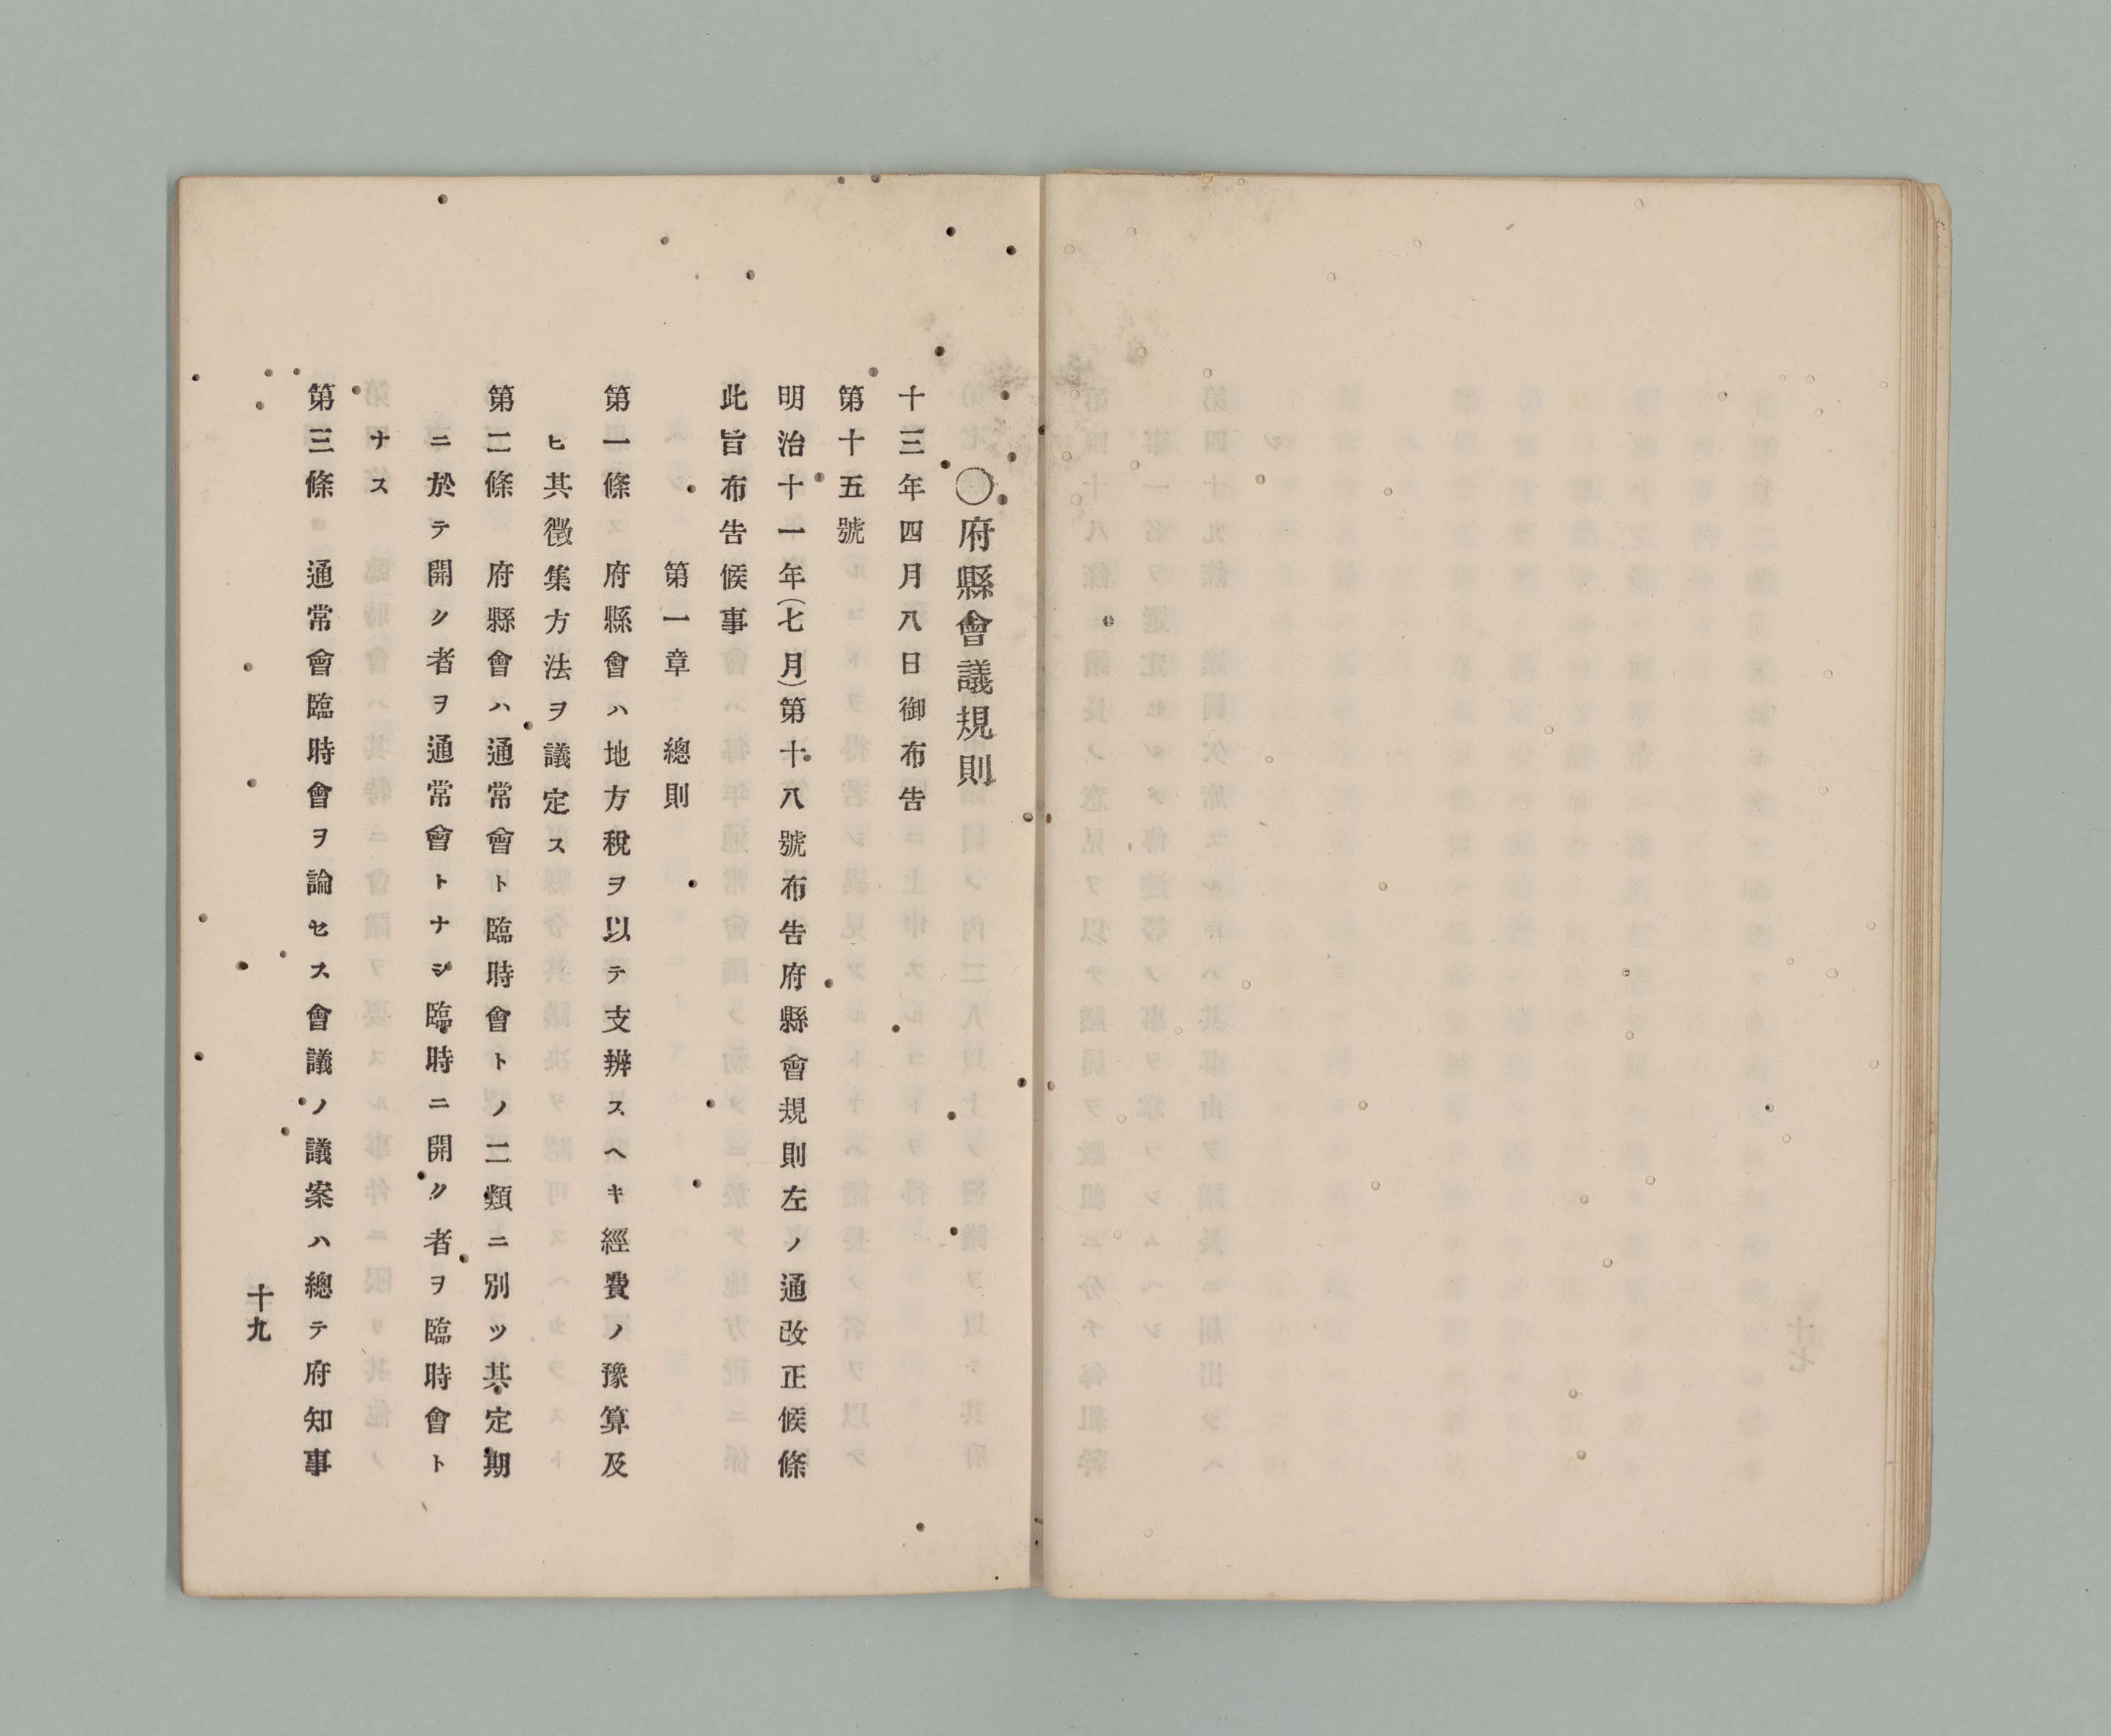 〇府縣會議規則
十三年四月八日御布告
第十五號
明治十一年(七月)第十八號布告府縣會規則左ノ通改正候條
此旨布告候事
第一章　總則
第一條　府縣會ハ地方稅ヲ以テ支辨スヘキ經費ノ豫算及
ヒ其徵集方法ヲ議定ス
第二條　府縣會ハ通常會ト臨時會トノ二類ニ別ツ其定期
ニ於テ開ク者ヲ通常會トナシ臨時ニ開ク者ヲ臨時會ト
ナス
第三條　通常會臨時會ヲ論セス會議ノ議案ハ總テ府知事
十九